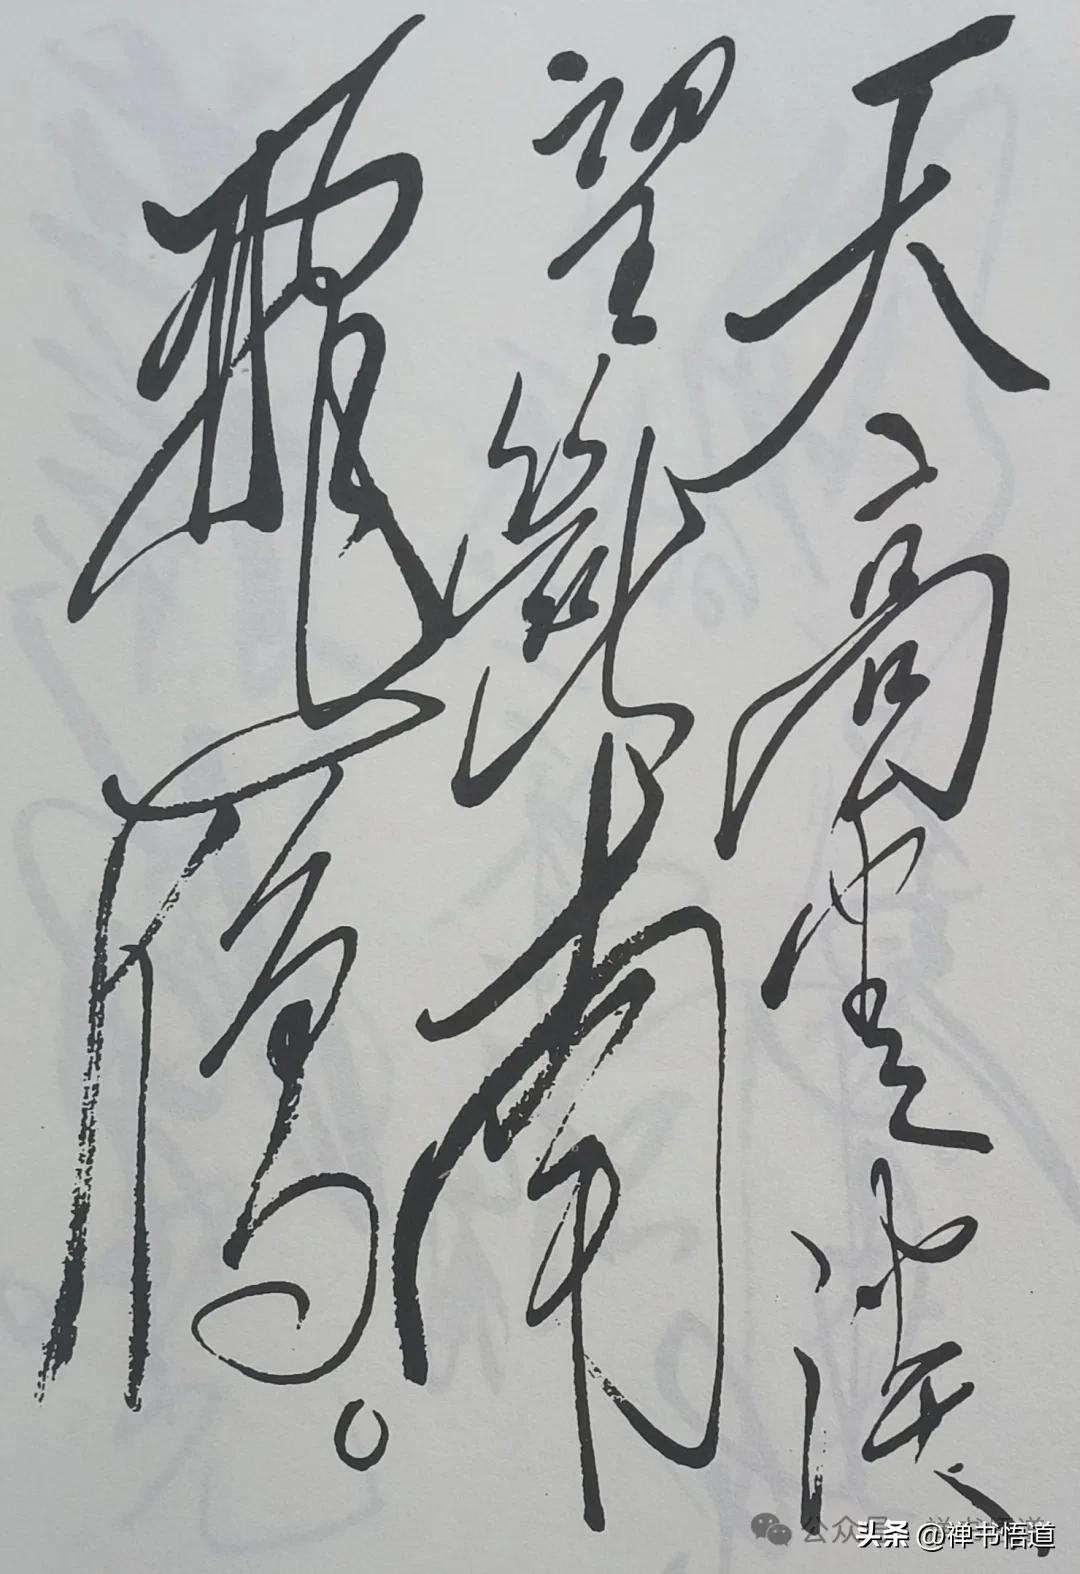 天高雲淡
望斷南
飛雁。
头条 @禅书悟道
公众号